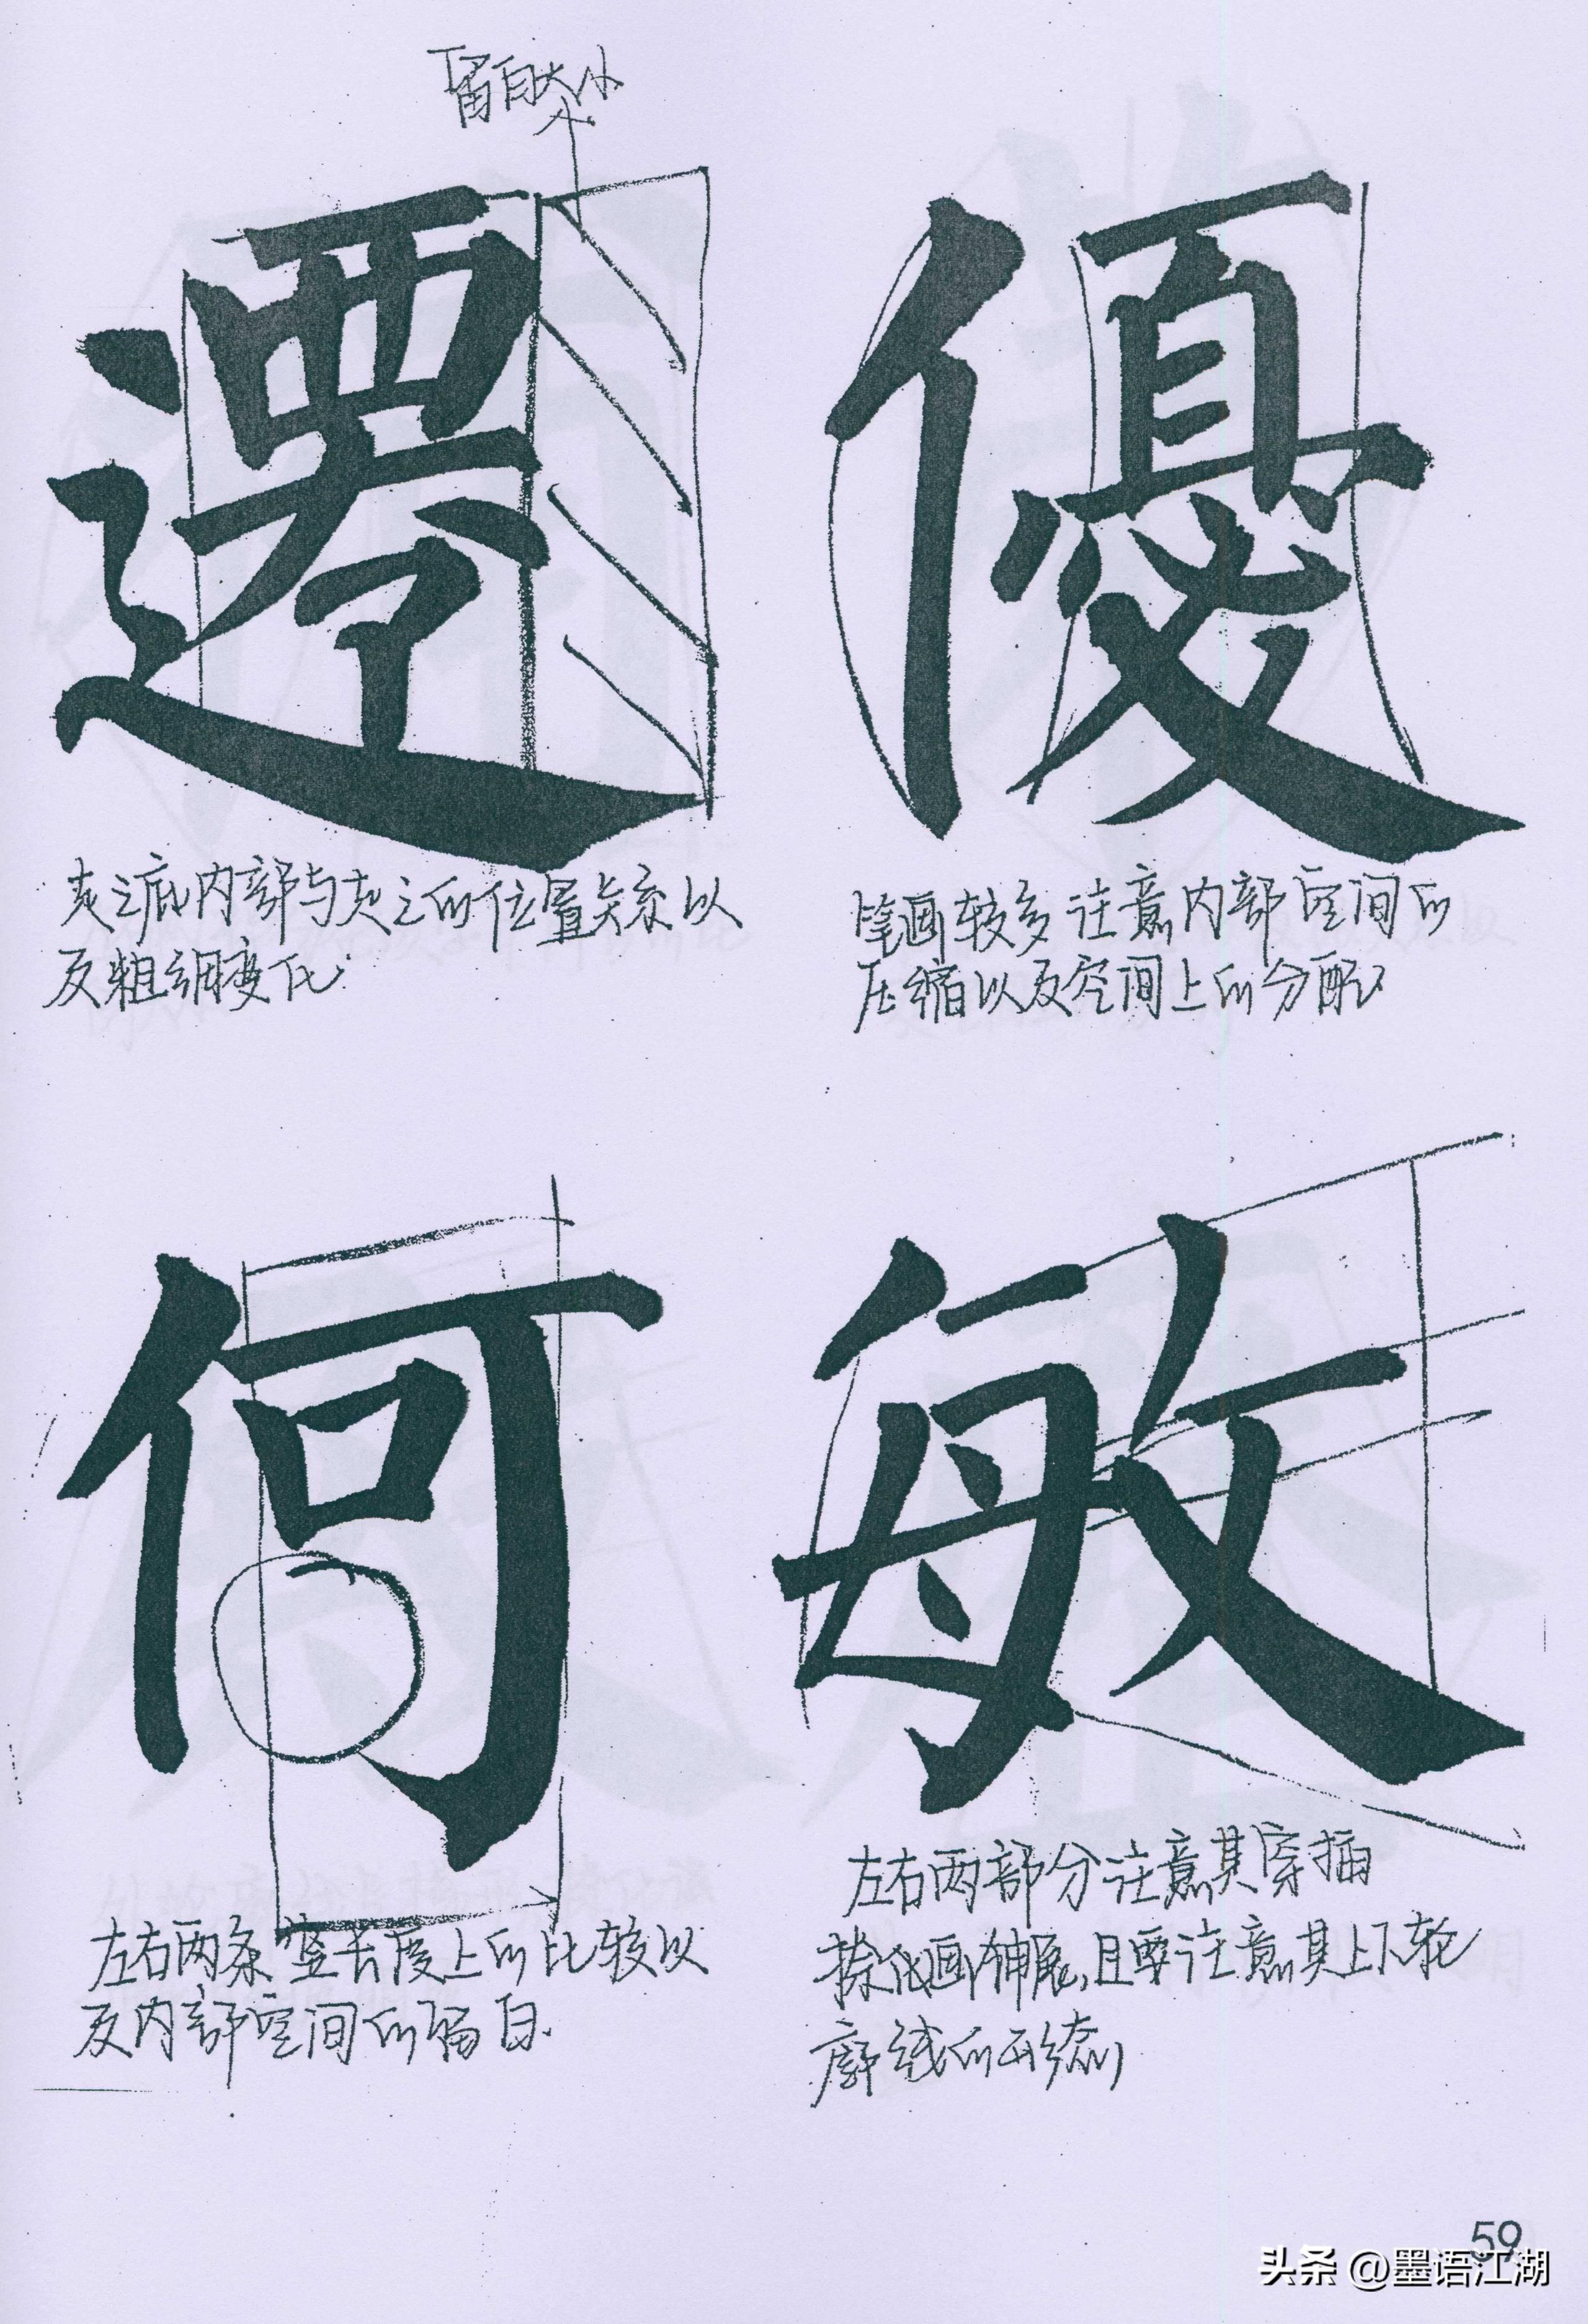 留白大小
遷
優
走之底内部与走之的位置关系以
及粗细变化.
笔画较多注意内部空间的
压缩以及空间上的分配
何
敏
左右两条竖长度上的比较以
及内部空间的留白.
左右两部分注意其穿插
捺画伸展,且要注意其上下轮
廓线的形态
59
头条 @墨语江湖